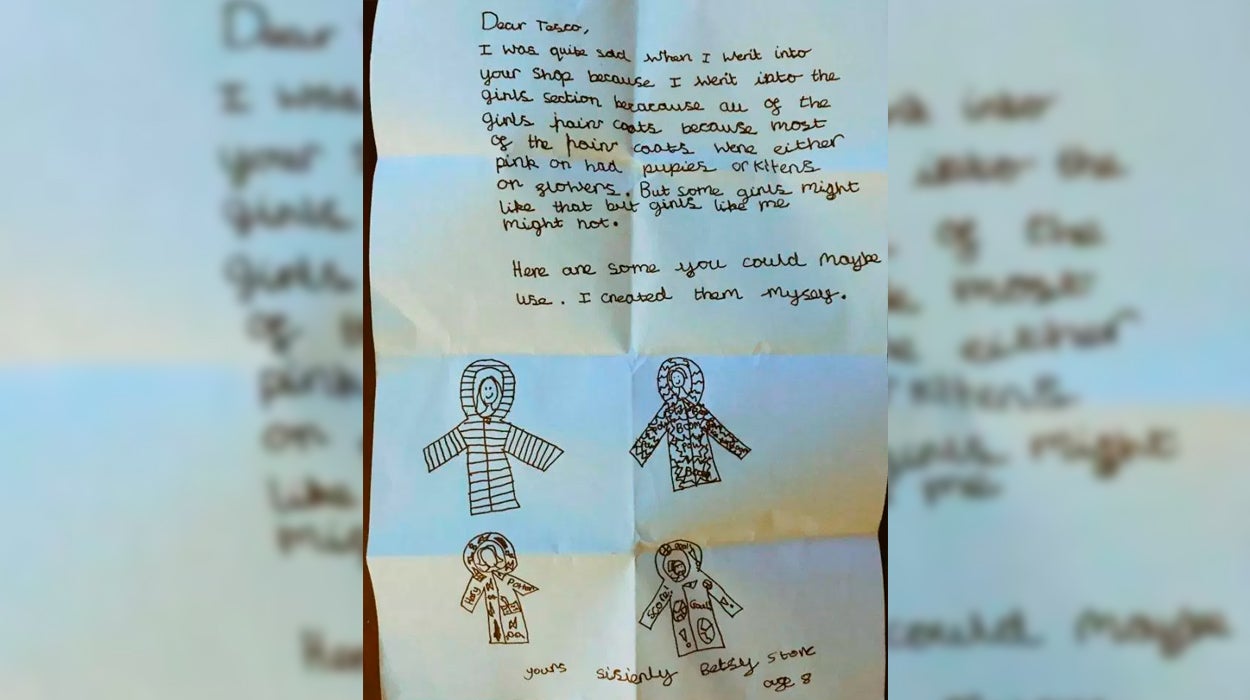 Dear Tesco,
I was quite sad when I went into
your shop because I went into the
girls section beracause all of the
girls rain coats because most
of the rain coats were either
pink or had pupies or kitens
or flowers. But some girls might
like that but girls like me
might not.
Here are some you could maybe
use. I created them myself.
Bam
Pow
Boom
Hary Potter
Goal
Score!
Goal
yours sisienly Betsy Stone
age 8